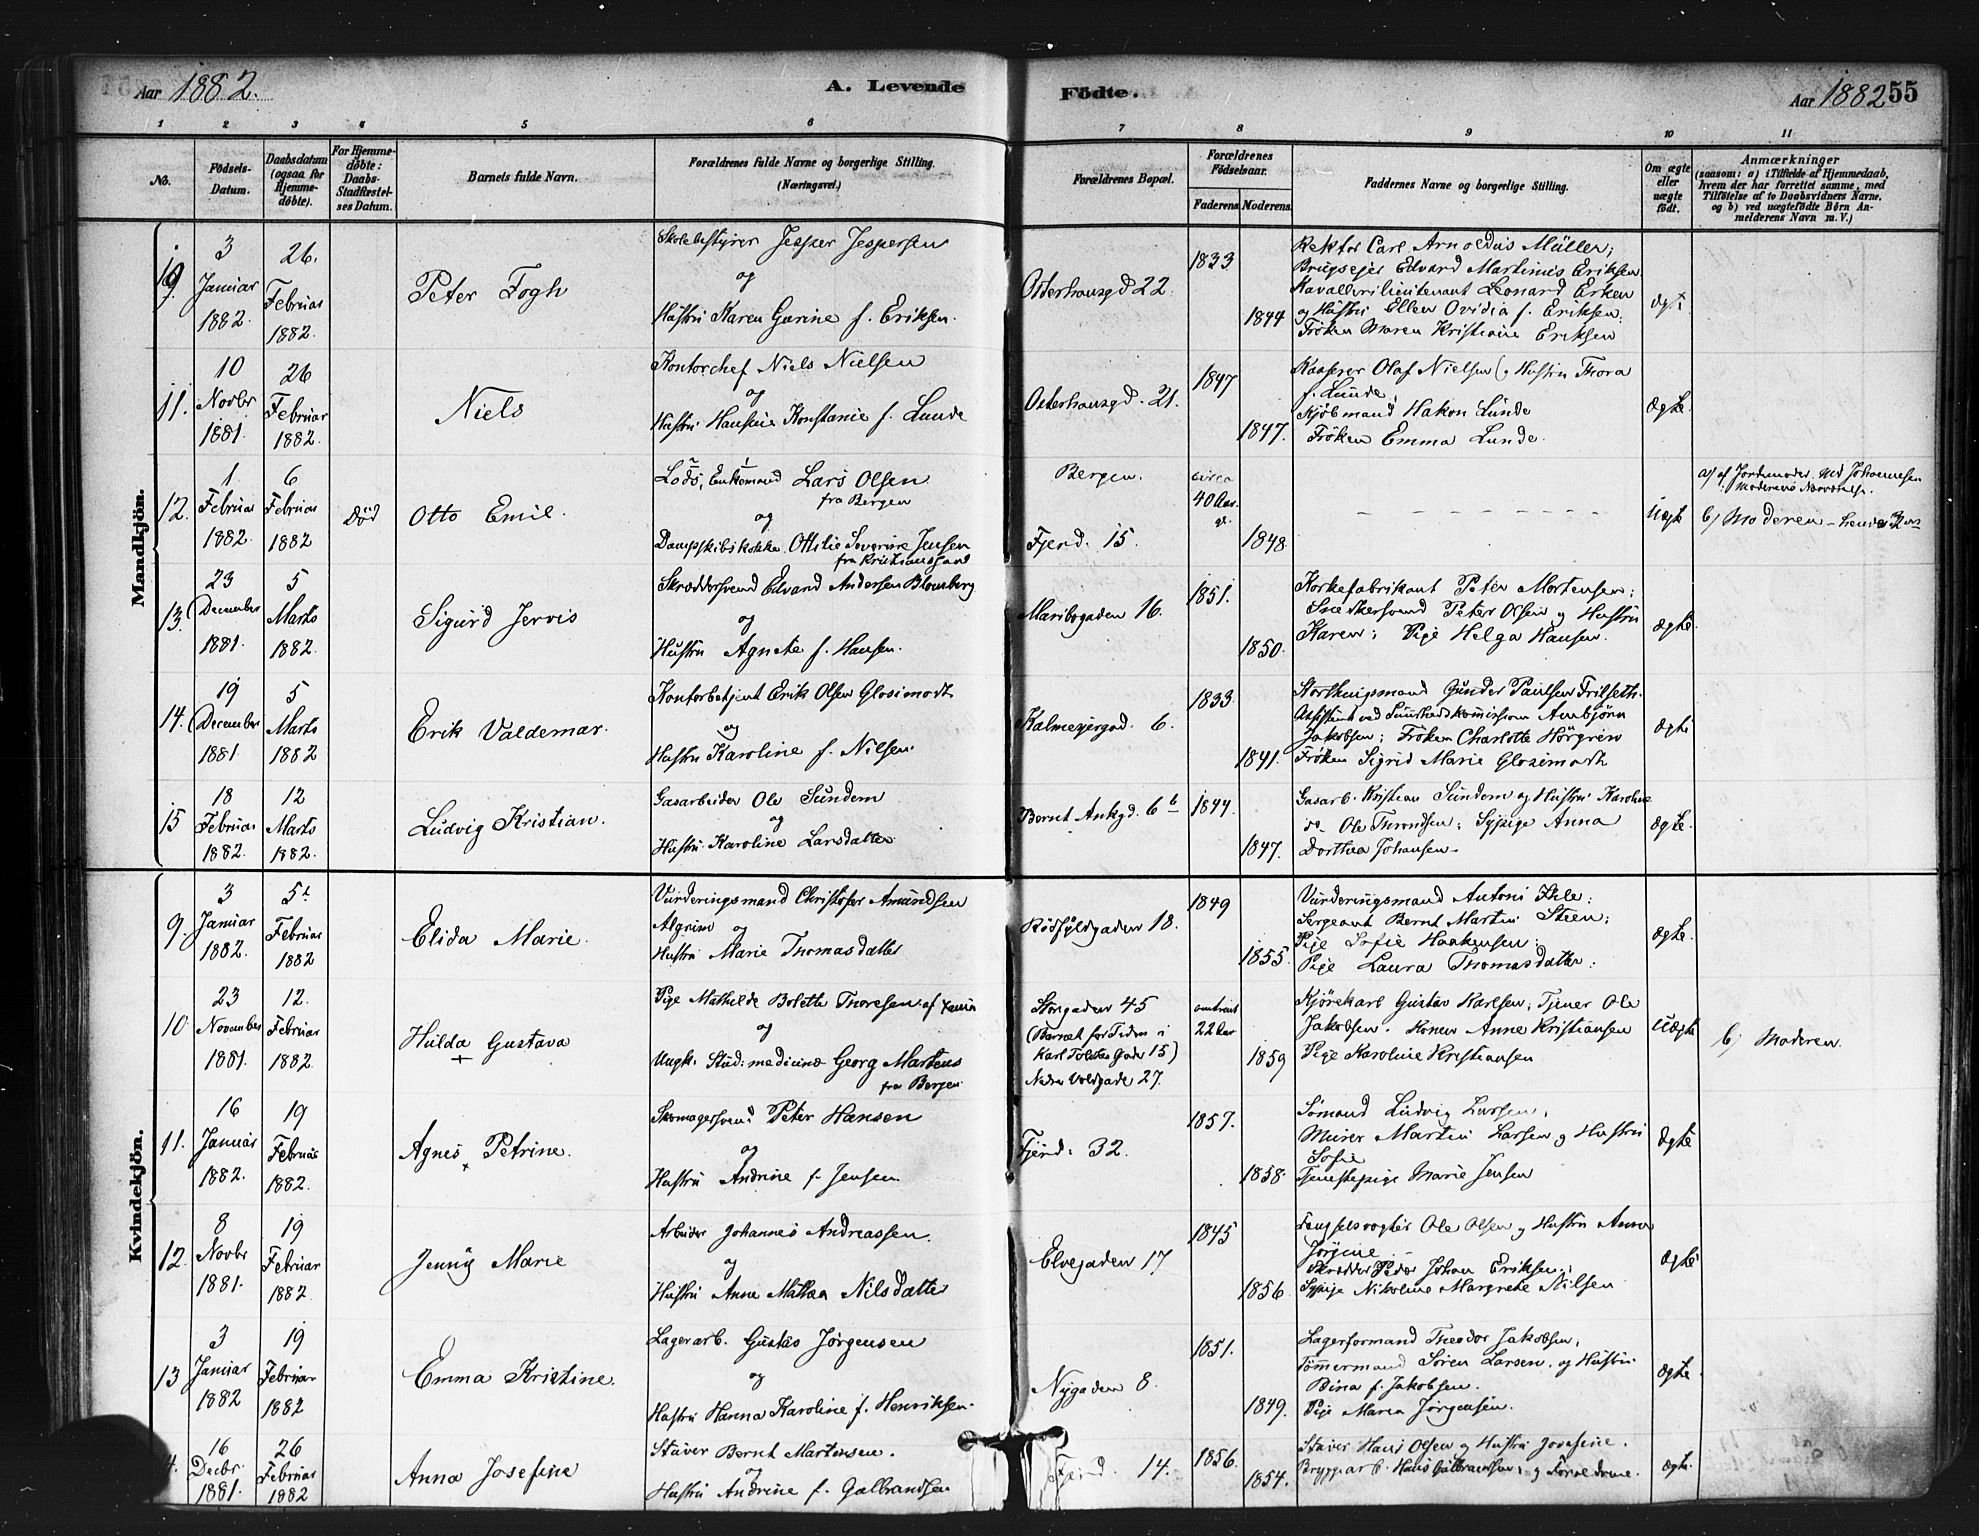 Aar 1882.
A. Levende
Födte.
Aar 1882
55
1 2 3 4 5 6 7 8 9 10 11
No.
Födsels-
Datum.
Daabsdatum
(ogsaa for
Hjemme-
döbte).
For Hjemme-
döbte:
Daabs-
Stadfæstel-
ses Datum.
Barnets fulde Navn.
Forældrenes fulde Navne og borgerlige Stilling.
(Næringsvei.)
Forældrenes Bopæl.
Forældrenes
Födselsaar.
Faderens. Moderens.
Faddernes Navne og borgerlige Stilling.
Om ægte
eller
uægte
födt.
Anmærkninger
(saasom: a) i Tilfælde af Hjemmedaab,
hvem der har forrettet samme, med
Tilföielse af to Daabsvidners Navne,
og b) ved uægtefödte Börn An-
melderens Navn m. V.)
Mandkjön.
3
Januar
1882.
26.
Februar
1882.
Peter Fogh
Skolebestyrer Jesper Jespersen
og
Hustru Karen Gurine f. Eriksen.
Osterhausgd 22.
1833
1844
Rektor Carl Arnoldus Müller;
Brugseier Edvard Martinius Eriksen
Kavallerilieutenant Leonard Erken
og Hustru Ellen Ovidia f. Eriksen;
Fröken Maren Kristiane Eriksen
ægte
11.
10
Novbr
1881.
26
Februar
1882.
Niels
Kontorchef Niels Nielsen
og
Hustru Hansine Konstanse f. Lunde
Osterhausgd. 21.
1847
1847.
Kasserer Olaf Nielsen og Hustru Thora
f. Lunde,
Kjöbmand Hakon Lunde
Fröken Emma Lunde.
ægte.
12.
1
Februar
1882.
6
Februar
1882
Död
Otto Emil.
Lods, Enkemand Lars Olsen
fra Bergen
og
Dampskibskokke Ottilie Severine Jensen
fra Kristianssand
Bergen.
Fjerd. 15.
circa
40 Aar
1848
Uægte
a) af Jordemoder Johannesen
Moderens
b) Moderen
13.
23
December
1881.
5
Marts
1882.
Sigurd Jervis
Skræddersvend Edvard Andersen Blomberg
og
Hustru Agnete f. Hansen.
Maribogaden 16.
1851.
1850.
Korkefabrikant Peter Mortensen;
Snedkersvend Peter Olsen og Hustru
Karen; Pige Helga Hansen.
ægte.
14.
19
December
1881
5
Marts
1882
Erik Valdemar.
Kontorbetjent Erik Olsen Glosimodt
og
Hustru Karoline f. Nilsen.
Kalmeyergad. 6.
1833.
1841.
Storthingsmand Gunder Paulsen Frilseth.
Assistent ved Sundhedskommissionen Anbjörn
Jakobsen; Fröken Charlotte Hörgren
Fröken Sigrid Marie Glosimodt
ægte
15
18
Februar
1882.
12
Marts
1882.
Ludvig Kristian.
Gasarbeider Ole Sundem
og
Hustru Karoline Larsdatter
Bernt Ankgd. 6 b
1844.
1847.
Gasarb. Kristian Sundem og Hustru Karoline
do Ole Throndsen; Sypige Anna
Dorthea Johansen.
ægte.
Kvindekjön.
9.
3
Januar
1882.
5t
Februar
1882
Elida Marie.
Vurderingsmand Christofer Amundsen
Algrim og
Hustru Marie Thomasdatter
Rödfyldgaden 18.
1849
1855.
Vurderingsmand Antoni Ihle;
Sergeant Bernt Martin Steen;
Pige Sofie Haakensen;
Pige Laura Thomasdatter;
ægte.
10
23
November
1881.
12.
Februar
1882.
Hulda Gustava
Pige Mathilde Bolette Thoresen af
og
Ungk. Stud. medicinæ Georg Martens
fra Bergen
Storgaden 45
(Barnet for Tiden i
Karl Gade 15)
Nedre Voldgade 27.
omtrent
22 Aar
1859
Kjörekarl Gustav Karlsen; Tjener Ole
Jakobsen. Konen Anne Kristiansen
Pige Karoline Kristiansen
Uægte
b) Moderen.
11.
16
Januar
1882.
19
Februar
1882.
Agnes Petrine.
Skomagersvend Peter Hansen
og
Hustru Andrine f. Jensen
Fjerd. 32.
1857.
1858.
Sömand Ludvig Larsen,
Murer Martin Larsen og Hustru
Sofie
Tjenestepige Marie Jensen
ægte
12.
8
Novbr
1881.
19
Februar
1882
Jenny Marie
Arbeider Johannes Andreassen.
og
Hustru Anne Mathea Nilsdatter
Elvegaden 17
1845
1856.
Fengselsvogter Ole Olsen og Hustru Anna
Jörgine
Skrædder Peder Johan Eriksen;
Sypige Nikoline Margrethe Nilsen
ægte
13
3
Januar
1882
19
Februar
1882
Emma Kristine.
Lagerarb. Gustav Jörgensen
og
Hustru Hanna Karoline f. Henriksen.
Nygaden 8.
1851.
1849.
Lagerformand Theodor Jakobsen;
Tömmermand Sören Larsen, og Hustru
Bina f. Jakobsen.
Pige Maren Jörgensen.
ægte
4.
16
Decbr
1881.
26
Februar
1882
Anna Josefine
Stuver Bernt Martinsen.
og
Hustru Andrine f. Gulbrandsen
Fjerd. 14.
1856.
1854.
Stuver Hans Olsen og Hustru Josefine.
Bryggearb. Hans Gulbrandsen; og Forældrene.
ægte.